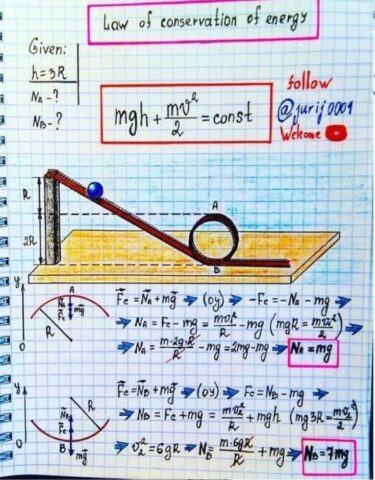 Law of conservation of energy
Given:
h=3R
NA-?
NB-?
mgh + mv²/2 = const
follow
@jurij0001
Welcome
R
2R
A
B
y
A
N⃗A
F⃗c
mg⃗
R
0
F⃗c=N⃗A+mg⃗ → (oy) → -Fc=-NA-mg →
→ NA=Fc-mg=mv₁²/R-mg (mgR=mv₁²/2) →
→ NA=m·2g·R/R-mg=2mg-mg → NA=mg
y
R
N⃗B
F⃗c
B
mg⃗
0
F⃗c=N⃗B+mg⃗ → (oy) → Fc=NB-mg →
→ NB=Fc+mg=mv₂²/R+mgh (mg3R=mv₂²/2)
→ v₂²=6gR → NB=m·6gR/R+mg → NB=7mg